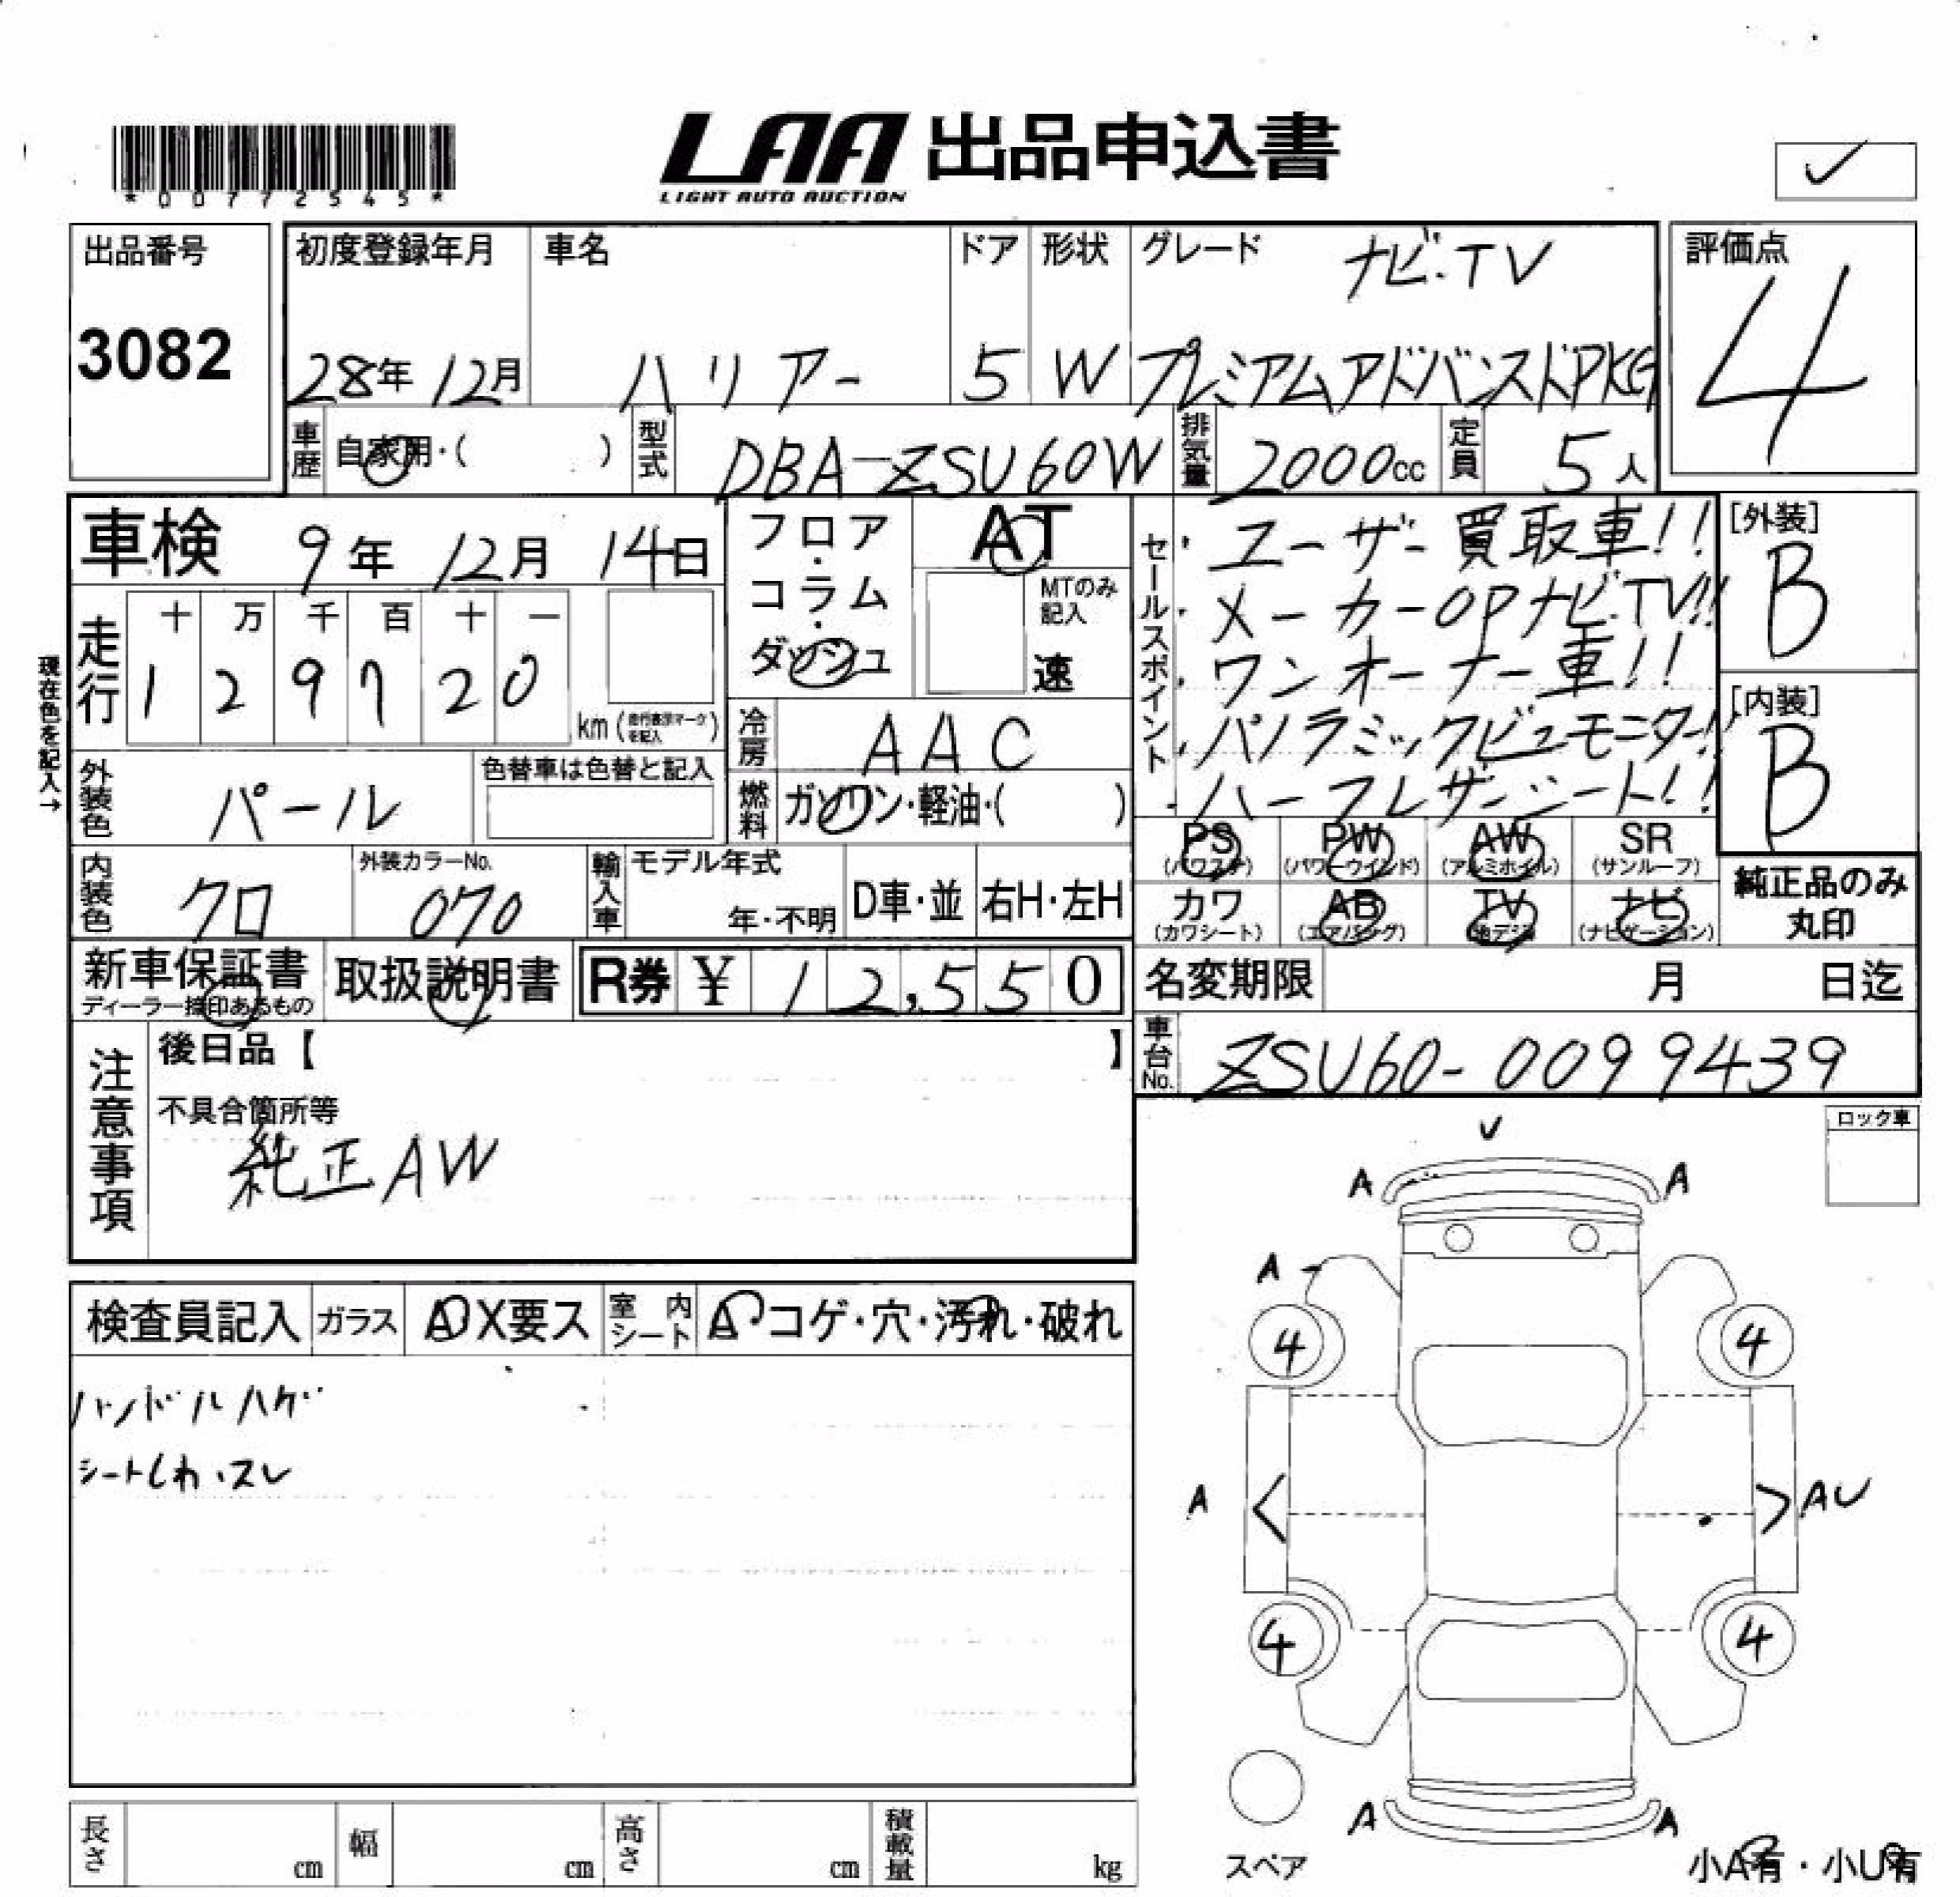 *00772545*
LAA 出品申込書
LIGHT AUTO AUCTION
出品番号
3082
初度登録年月
28年 12月
車名
ハリアー
ドア
5
形状
W
グレード
ナビ・TV
プレミアムアドバンスドPKG
評価点
4
車歴
自家用・( )
型式
DBA-ZSU60W
排気量
2000cc
定員
5人
車検 9年 12月 14日
フロア・コラム・ダッシュ
AT
MTのみ記入
速
セールスポイント
・ユーザー買取車!!
・メーカーOPナビ.TV!!
・ワンオーナー車!!
・パノラミックビューモニター!
・ハーフレザーシート!!
[外装]
B
[内装]
B
現在色を記入→
走行
十 万 千 百 十 一
1 2 9 7 2 0
km (走行表示マークを記入)
冷房
AAC
外装色
パール
色替車は色替と記入
燃料
ガソリン・軽油・( )
PS
(パワステ)
PW
(パワーウインド)
AW
(アルミホイル)
SR
(サンルーフ)
内装色
クロ
外装カラーNo.
070
輸入車
モデル年式
年・不明
D車・並
右H・左H
カワ
(カワシート)
AB
(エアバッグ)
TV
(地デジ)
ナビ
(ナビゲーション)
純正品のみ
丸印
新車保証書
ディーラー捺印あるもの
取扱説明書
R券 ¥ 12,550
名変期限 月 日迄
車台No.
ZSU60-0099439
注意事項
後日品【 】
不具合箇所等
純正AW
ロック車
検査員記入
ガラス
A X要ス
室内シート
A コゲ・穴・汚れ・破れ
ハンドルハゲ
シートしわ、スレ
A A
A
4 4
A AU
4 4
A A
スペア
小A有・小U有
長さ cm
幅 cm
高さ cm
積載量 kg